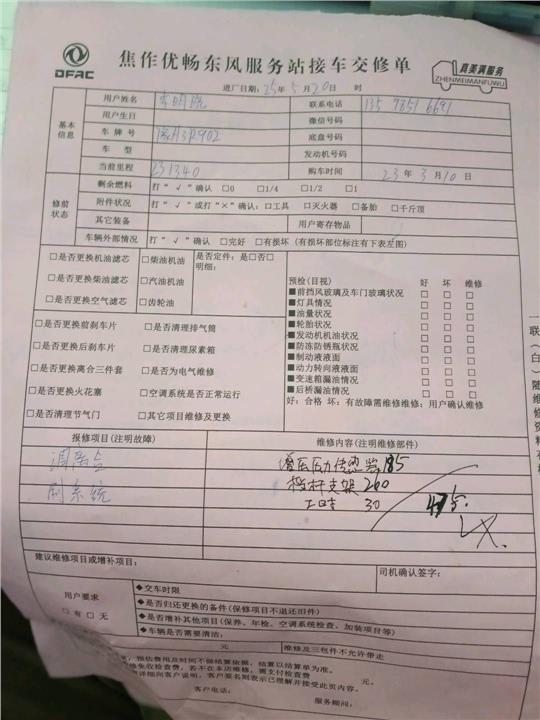 DFAC
焦作优畅东风服务站接车交修单
真美满服务
ZHENMEIMANFUWU
进厂日期：25年5月20日 时
基本信息
用户姓名 联系电话 135 7851 6691
用户生日 微信号码
车牌号 底盘号码
车型 发动机号码
当前里程 231340 购车时间 23年3月10日
修前状态
剩余燃料 打“√”确认 □0 □1/4 □1/2 □1
附件状况 打“√”或打“×”确认：□工具 □灭火器 □备胎 □千斤顶
其它装备 用户寄存物品
车辆外部情况 打“√”确认 □完好 □有损坏（有损坏部位标注有下表左图）
□是否更换机油滤芯 □柴油机油 是否定件：是□否□
明细：
□是否更换柴油滤芯 □汽油机油
□是否更换空气滤芯 □齿轮油
□是否更换前刹车片 □是否清理排气筒
□是否更换后刹车片 □是否清理尿素箱
□是否更换离合三件套 □是否为电气维修
□是否更换火花塞 □空调系统是否正常运行
□是否清理节气门 □其它项目维修及更换
预检(目视) 好 坏 维修
■前挡风玻璃及车门玻璃状况 □ □ □
■灯具情况 □ □ □
■油量状况 □ □ □
■轮胎状况 □ □ □
■发动机机油状况 □ □ □
■防冻防锈瓶状况 □ □ □
■制动液液面 □ □ □
■动力转向液液面 □ □ □
■变速箱漏油情况 □ □ □
■后桥漏油情况 □ □ □
好：合格 坏：有故障需维修维修：用户确认维修
报修项目(注明故障) 维修内容(注明维修部件)
调离合 增压压力传感器 185
刷系统 档杆支架 260
工时 30 475.
建议维修项目或增补项目：
司机确认签字：
用户要求
□有□无
◆交车时限
◆是否归还更换的备件(保修项目不退还旧件)
◆是否增补其他项目(保养、年检、空调系统检查、加装项目等)
◆车辆是否需要清洁：
元 维修及三包件不允许带走
预估费用及时间不做结算依据，结算以结算单为准。
修免收检查费，若不在本店维修，需支付检查费 元。
详细向客户说明，客户签名则表示已理解并接受此页内容。
客户电话： 服务顾问：
一联（白）随维修资料有